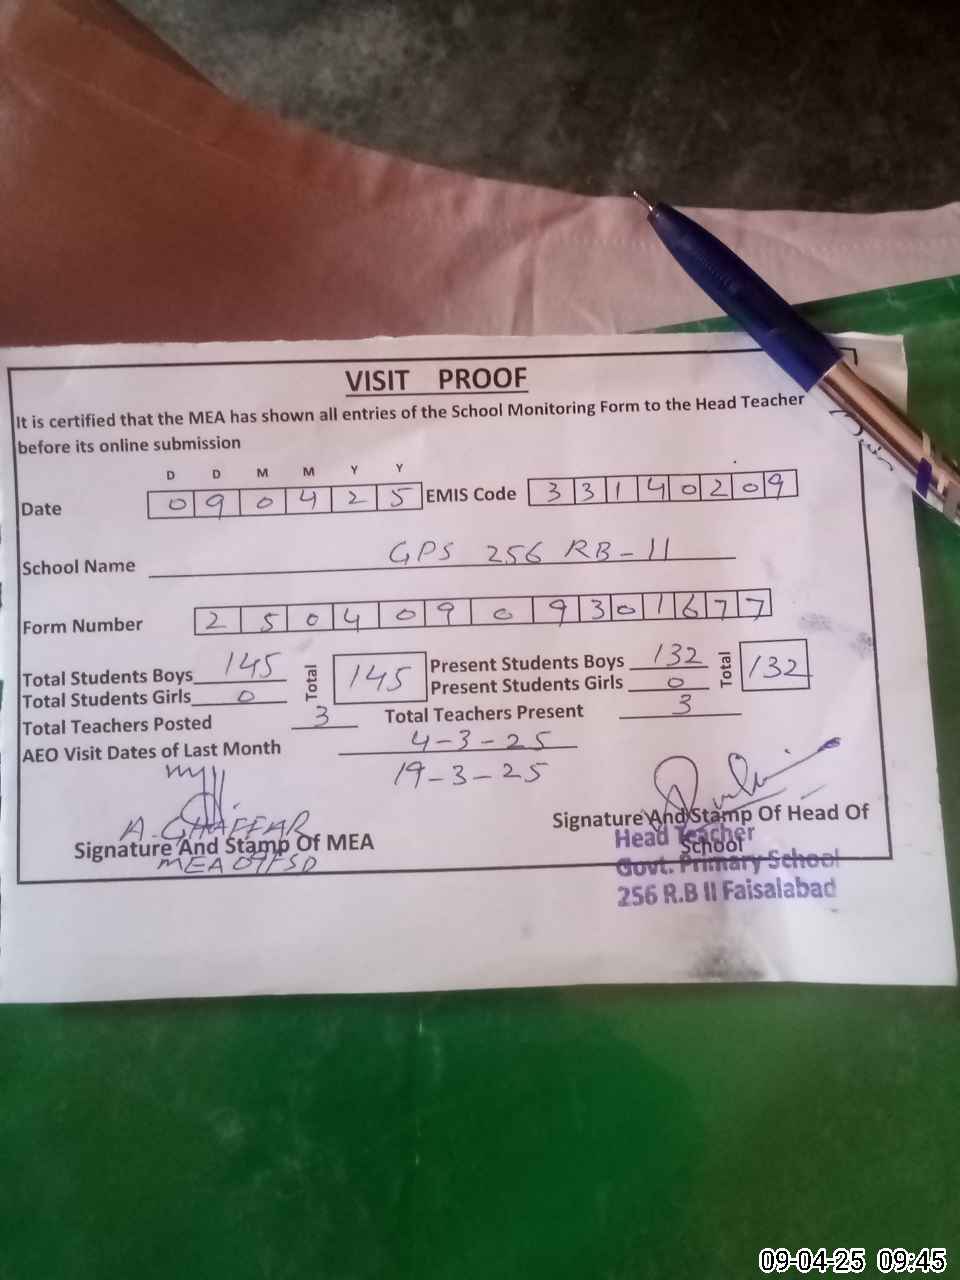 VISIT PROOF
It is certified that the MEA has shown all entries of the School Monitoring Form to the Head Teacher
before its online submission
D D M M Y Y
Date 0 9 0 4 2 5 EMIS Code 3 3 1 4 0 2 0 9
School Name GPS 256 RB-II
Form Number 2 5 0 4 0 9 0 9 3 0 1 6 7 7
Total Students Boys 145 Total 145 Present Students Boys 132 Total 132
Total Students Girls 0 Present Students Girls 0
Total Teachers Posted 3 Total Teachers Present 3
AEO Visit Dates of Last Month 4-3-25
19-3-25
A. GHAFFAR
Signature And Stamp Of MEA
MEA 09 FSD
Signature And Stamp Of Head Of
School
Head Teacher
Govt. Primary School
256 R.B II Faisalabad
09-04-25 09:45